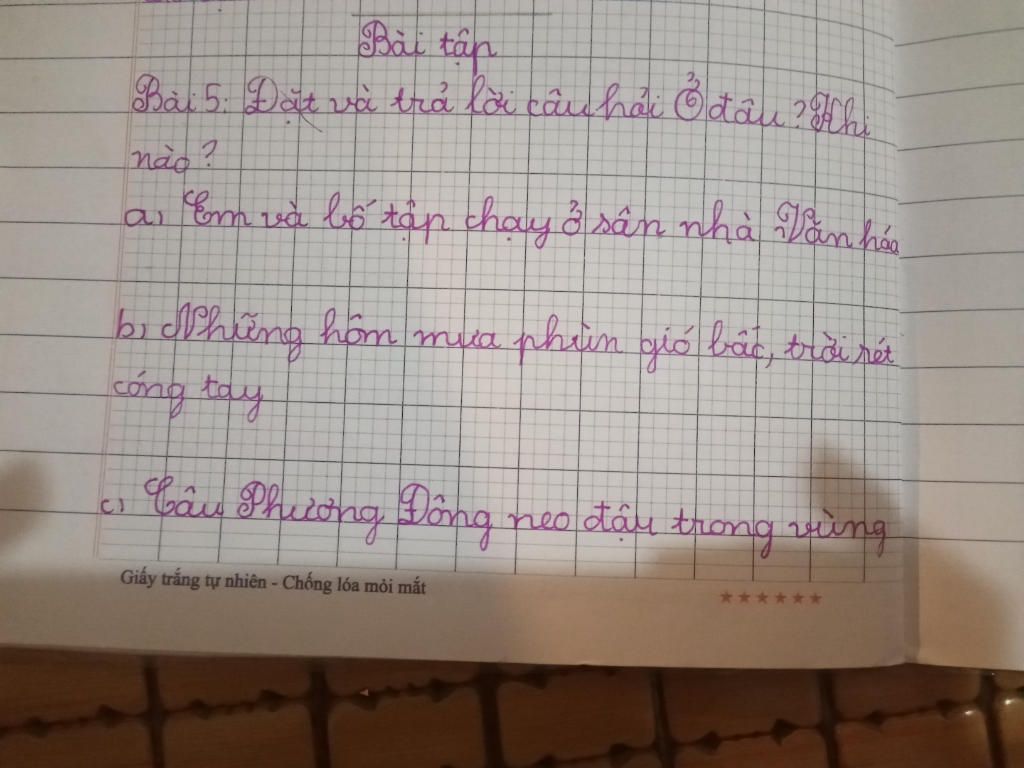 Bài tập
Bài 5: Đặt và trả lời câu hỏi Ở đâu? Khi
nào?
a, Em và bố tập chạy ở sân nhà Văn hóa
b, Những hôm mưa phùn gió bấc, trời rét
cóng tay
c, Tàu Phương Đông neo đậu trong vùng
Giấy trắng tự nhiên - Chống lóa mỏi mắt
★★★★★★